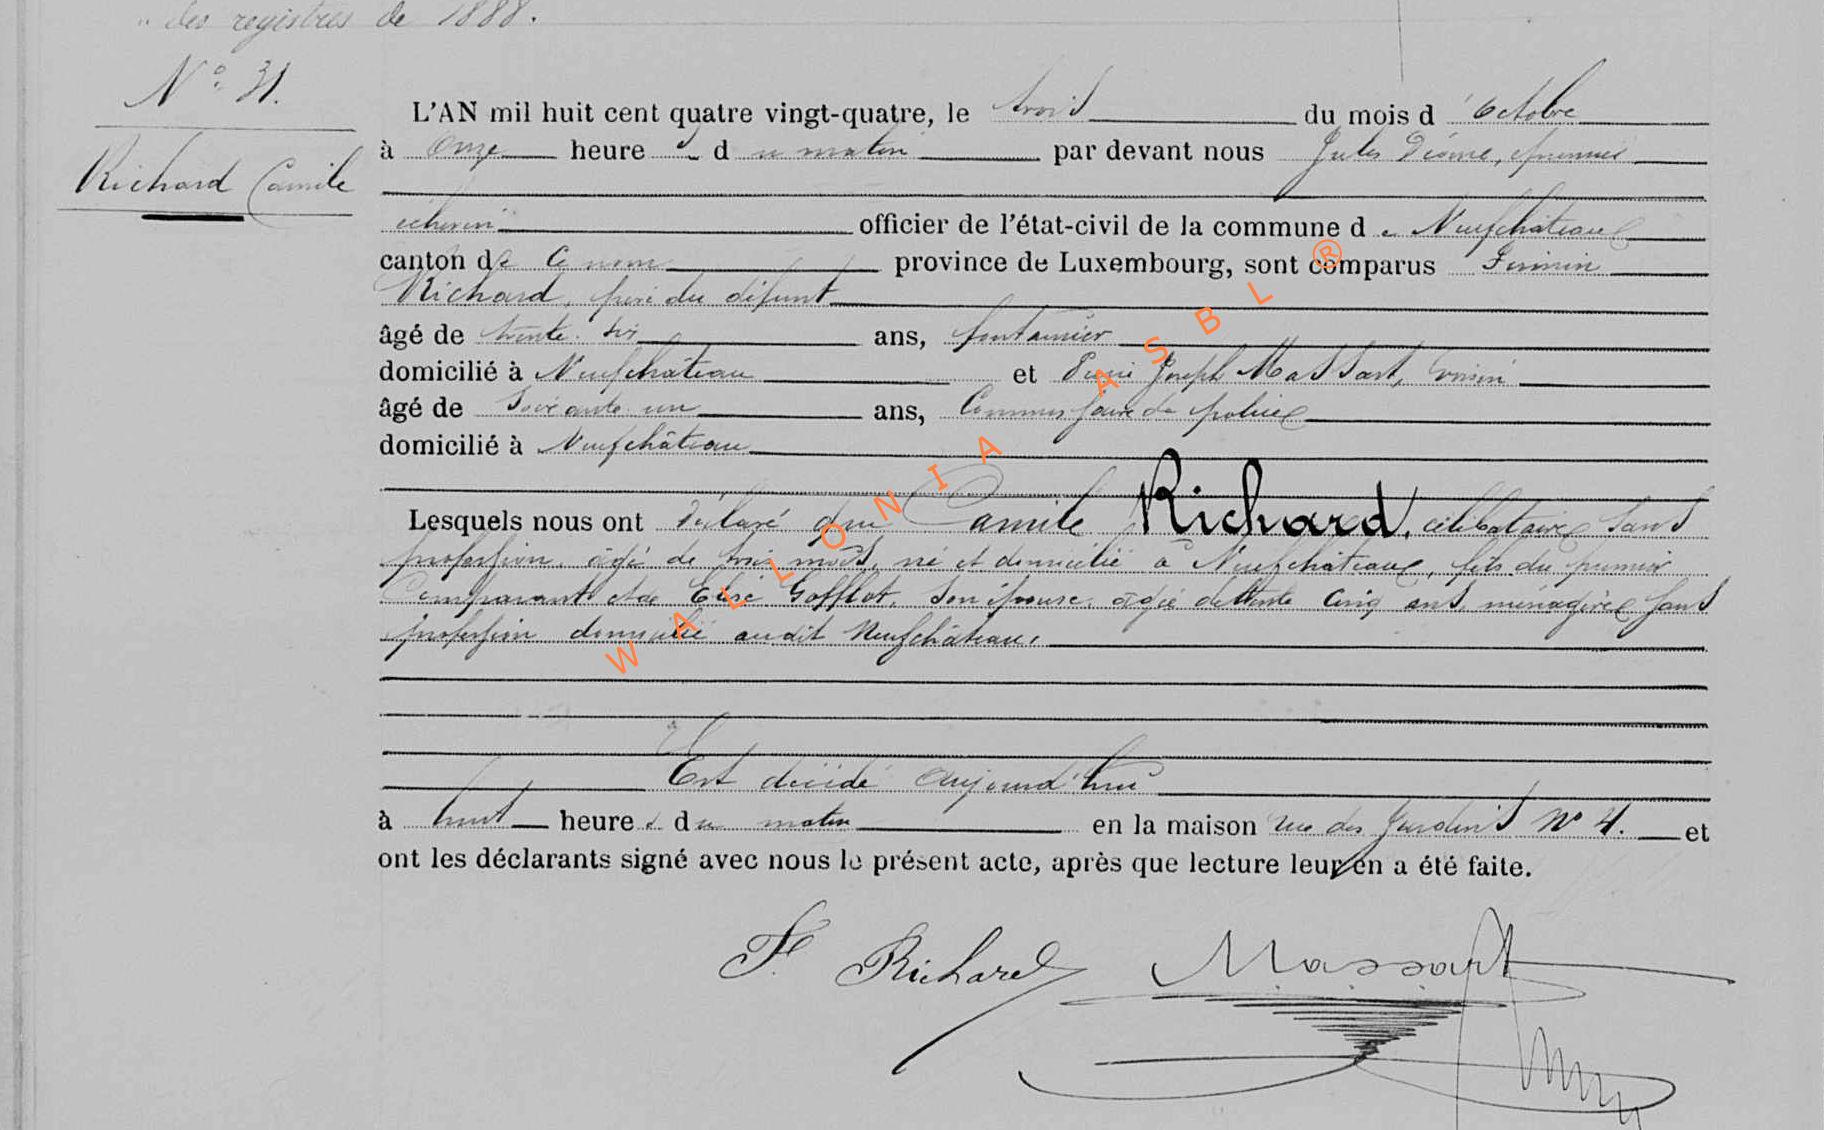 des registres de 1888.
N° 31.
Richard Camile
L'AN mil huit cent quatre vingt-quatre, le trois du mois d'Octobre
à Onze heures du matin par devant nous Jules premier
échevin officier de l'état-civil de la commune de Neufchâteau
canton de Ce nom province de Luxembourg, sont comparus Firmin
Richard, père du défunt
âgé de trente-six ans, fontainier
domicilié à Neufchâteau et Joseph Massart, voisin
âgé de Soixante un ans, Commissaire de police
domicilié à Neufchâteau
Lesquels nous ont déclaré que Camile Richard, célibataire sans
profession, âgé de trois mois, né et domicilié à Neufchâteau, fils du premier
Comparant et de Elise Gofflot, son épouse, âgée de trente cinq ans, ménagère sans
profession domiciliée audit Neufchâteau.
Est décédé aujourd'hui
à huit heures du matin en la maison rue des Jardins N° 4. et
ont les déclarants signé avec nous le présent acte, après que lecture leur en a été faite.
F. Richard Massart
WALLONIA ASBL ®